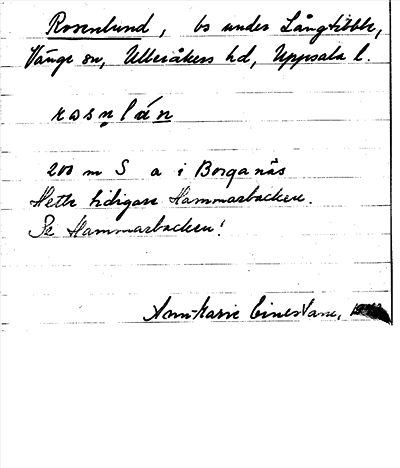 Rosenlund, bs under Långtibble,
Vänge sn, Ulleråkers hd, Uppsala l.
rosn̥lán
200 m S a i Borganäs
Hette tidigare Hammarbacken.
Se Hammarbacken!
Ann-Marie